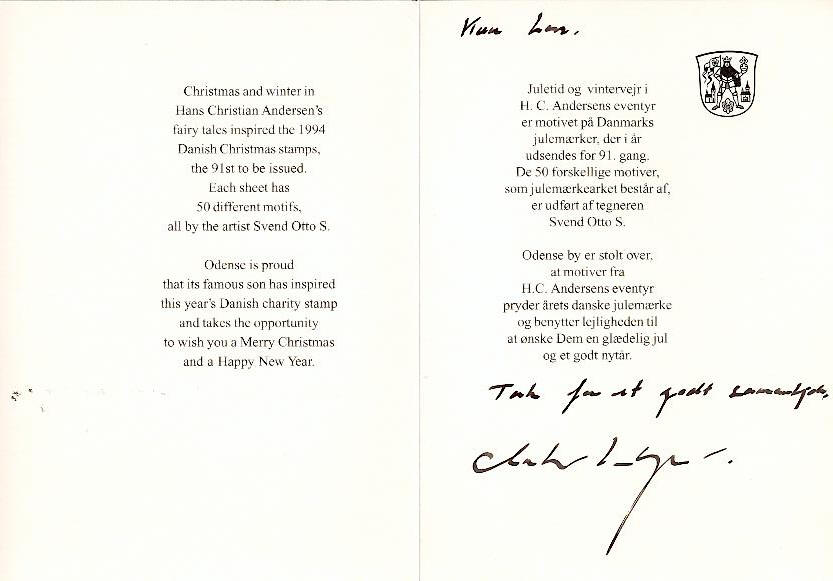 Christmas and winter in
Hans Christian Andersen's
fairy tales inspired the 1994
Danish Christmas stamps,
the 91st to be issued.
Each sheet has
50 different motifs,
all by the artist Svend Otto S.
Odense is proud
that its famous son has inspired
this year's Danish charity stamp
and takes the opportunity
to wish you a Merry Christmas
and a Happy New Year.
Juletid og vintervejr i
H. C. Andersens eventyr
er motivet på Danmarks
julemærker, der i år
udsendes for 91. gang.
De 50 forskellige motiver,
som julemærkearket består af,
er udført af tegneren
Svend Otto S.
Odense by er stolt over,
at motiver fra
H.C. Andersens eventyr
pryder årets danske julemærke
og benytter lejligheden til
at ønske Dem en glædelig jul
og et godt nytår.
Tak for et godt samarbejde,